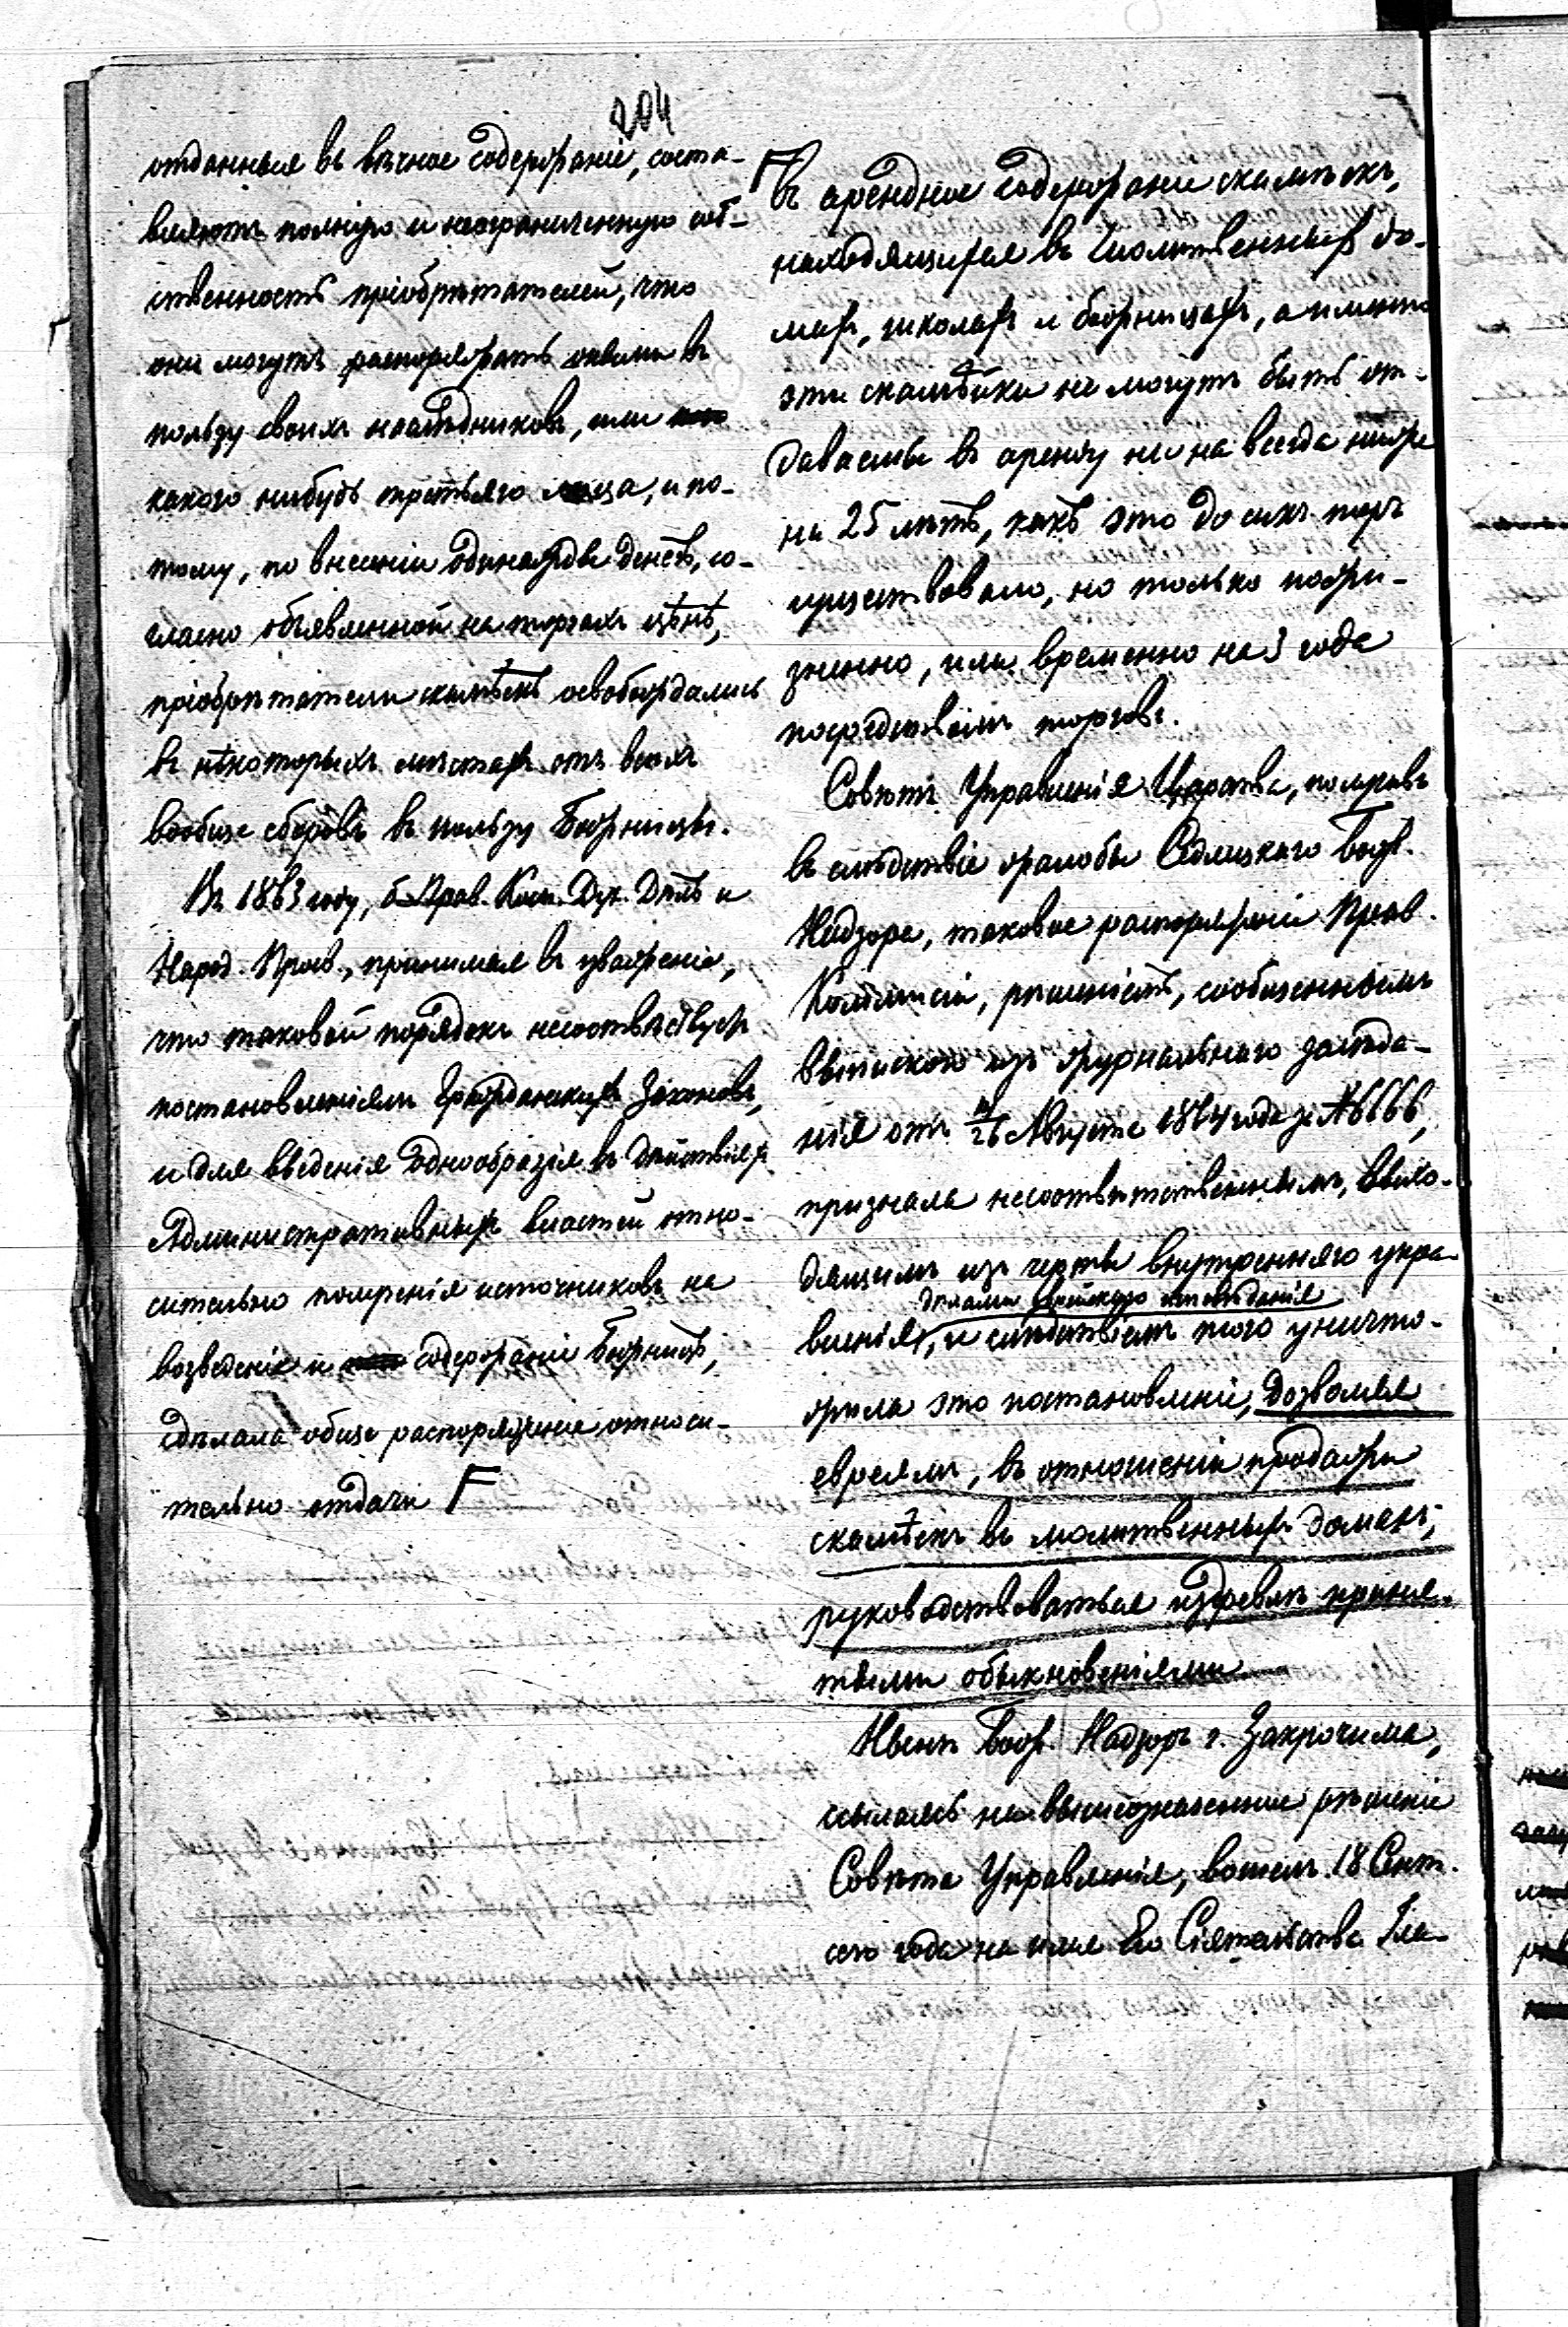 204
отданныя въ вѣчное содержаніе, соста-
вляютъ полную и неограниченную соб-
ственность пріобрѣтателей, что
они могутъ распоряжать оными въ
пользу своихъ наслѣдниковъ, или
какого нибудь третьяго лица, и по-
тому, по внесеніи единажды денегъ, со-
гласно объявленной на торгахъ цѣнѣ,
пріобрѣтатели скамѣекъ освобождались
въ нѣкоторыхъ мѣстахъ отъ всѣхъ
вообще сборовъ въ пользу Божницы.
Въ 1863 году, б. Прав. Ком. Дух. Дѣлъ и
Народ. Просв., принимая въ уваженіе,
что таковой порядокъ несоотвѣтствуетъ
постановленіямъ Гражданскихъ Законовъ,
и для введенія однообразія въ дѣйствіяхъ
Административныхъ властей отно-
сительно полученія источниковъ на
возведеніе и содержаніе Божницъ,
сдѣлала общее распоряженіе относи-
тельно отдачи F
F въ арендное содержаніе скамѣекъ,
находящихся въ молитвенныхъ до-
махъ, школахъ и божницахъ, а именно
эти скамѣйки не могутъ быть от-
даваемы въ аренду ни на всегда ниже
на 25 лѣтъ, какъ это до сихъ поръ
существовало, но только пожи-
зненно, или временно на 3 года
посредствомъ торговъ.
Совѣтъ Управленія Царства, получивъ
въ слѣдствіе жалобы Сѣдлецкаго Божн.
Надзора, таковое распоряженіе Прав.
Коммисіи, рѣшеніемъ, сообщеннымъ
выпискою изъ журнальнаго засѣда-
нія отъ 14/26 Августа 1864 года за № 6666,
признала несоотвѣтственнымъ, выхо-
дящимъ изъ черты внутренняго упра-
дѣлами еврейскаго исповѣданія
вленія, и слѣдствіемъ того уничто-
жила это постановленіе, дозволяя
евреямъ, въ отношеніи продажи
скамѣекъ въ молитвенныхъ домахъ,
руководствоваться издревлѣ приня-
тыми обыкновеніями.
Нынѣ Божн. Надзоръ г. Закрочима,
ссылаясь на вышеозначенное рѣшеніе
Совѣта Управленія, вошелъ 18 Сент.
сего года на имя Его Сіятельства Гла-